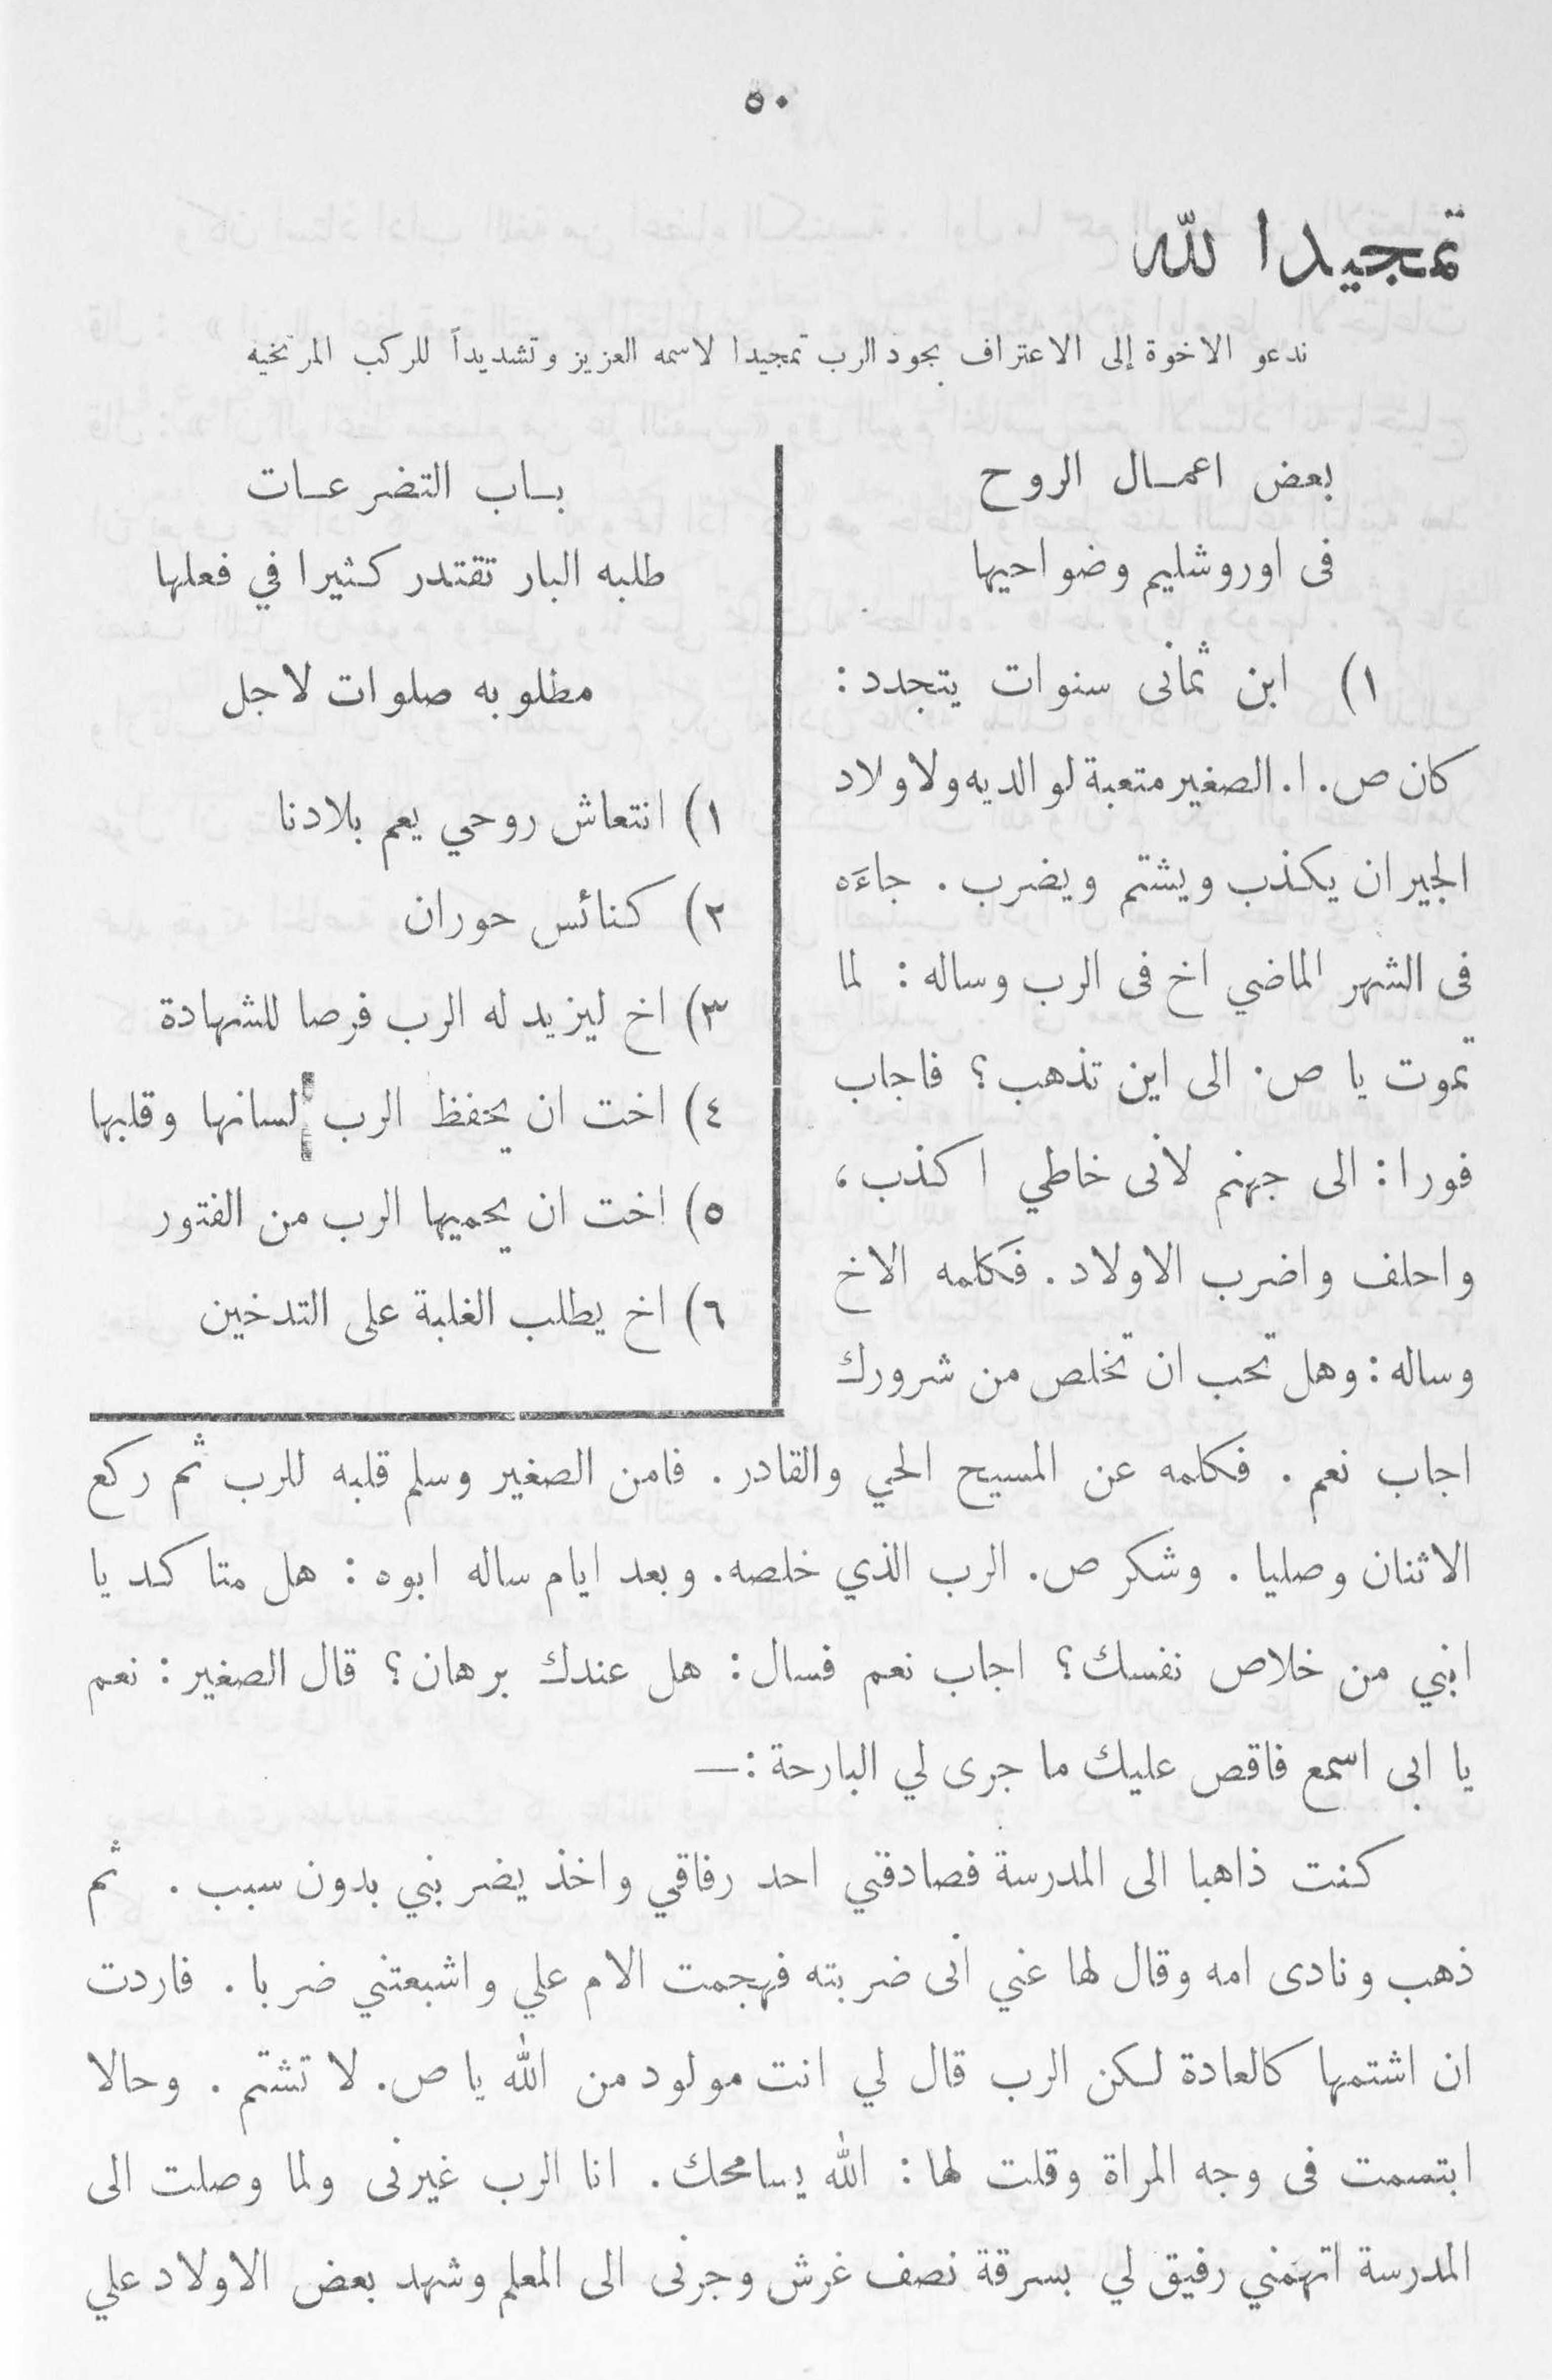 ٥٠
تمجيدا لله
ندعو الاخوة إلى الاعتراف بجود الرب تمجيدا لاسمه العزيز وتشديداً للركب المرتخيه
بعض اعمــال الروح
فى اوروشليم وضواحيها
١) ابن ثمانى سنوات يتجدد :
كان ص. ا. الصغير متعبة لوالديه ولاولاد
الجيران يكذب ويشتم ويضرب . جاءَه
فى الشهر الماضي اخ فى الرب وساله : لما
تموت يا ص. الى اين تذهب؟ فاجاب
فورا : الى جهنم لأنى خاطي اكذب ،
واحلف واضرب الاولاد . فكلمه الاخ
وساله : وهل تحب ان تخلص من شرورك
بــاب التضرعــات
طلبه البار تقتدر كثيرا في فعلها
مطلوبه صلوات لاجل
١) انتعاش روحي يعم بلادنا
٢) كنائس حوران
٣) اخ ليزيد له الرب فرصا للشهادة
٤) اخت ان يحفظ الرب لسانها وقلبها
٥) اخت ان يحميها الرب من الفتور
٦) اخ يطلب الغلبة على التدخين
اجاب نعم . فكلمه عن المسيح الحي والقادر . فامن الصغير وسلم قلبه للرب ثم ركع
الاثنان وصليا . وشكر ص. الرب الذي خلصه. وبعد ايام ساله ابوه : هل متاكد يا
ابني من خلاص نفسك؟ اجاب نعم فسال : هل عندك برهان؟ قال الصغير : نعم
يا ابى اسمع فاقص عليك ما جرى لي البارحة :—
كنت ذاهبا الى المدرسة فصادفني احد رفاقي واخذ يضربني بدون سبب . ثم
ذهب ونادى امه وقال لها عني انى ضربته فهجمت الام علي واشبعتني ضربا . فاردت
ان اشتمها كالعادة لكن الرب قال لي انت مولود من الله يا ص. لا تشتم . وحالا
ابتسمت فى وجه المراة وقلت لها : الله يسامحك . انا الرب غيرنى ولما وصلت الى
المدرسة اتهمني رفيق لي بسرقة نصف غرش وجرنى الى المعلم وشهد بعض الاولاد علي